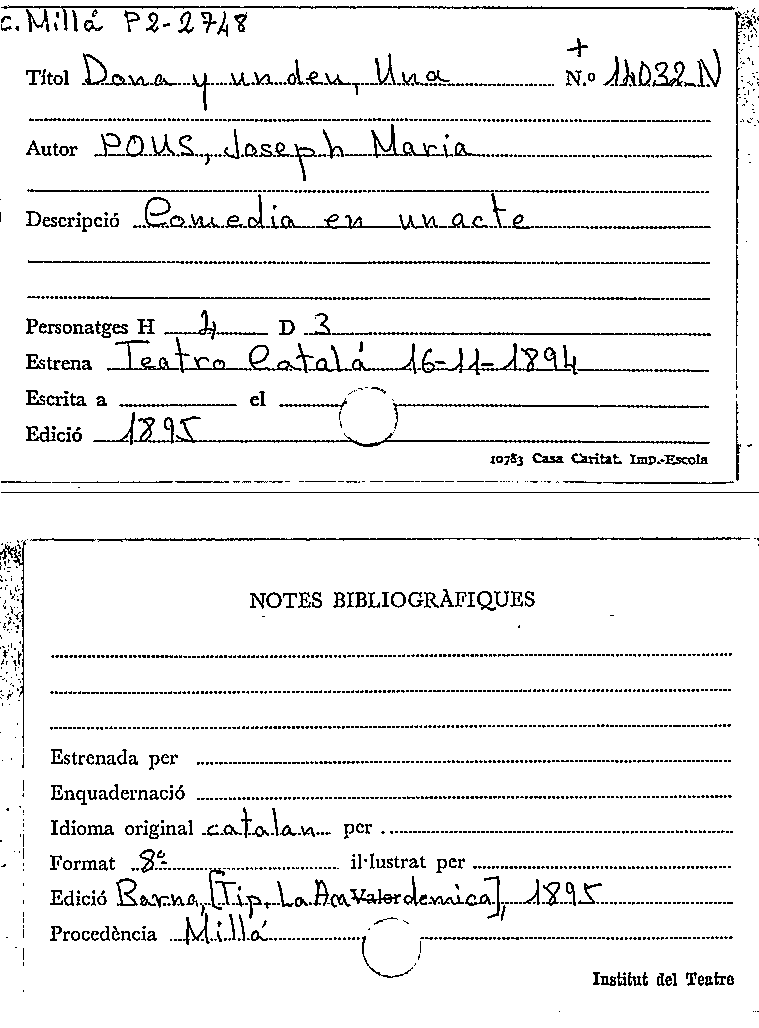 c. Millá P2-2748
+
Títol Dona y un deu, Una N.o 14032 N
Autor POUS, Joseph Maria
Descripció Comedia en un acte
Personatges H 4 D 3
Estrena Teatro Catalá 16-11-1894
Escrita a el
Edició 1895
10783 Casa Caritat. Imp.-Escola
NOTES BIBLIOGRÀFIQUES
Estrenada per
Enquadernació
Idioma original catalan per
Format 8º il·lustrat per
Edició Barna, [Tip. La Academica], 1895
Procedència Millá
Institut del Teatre